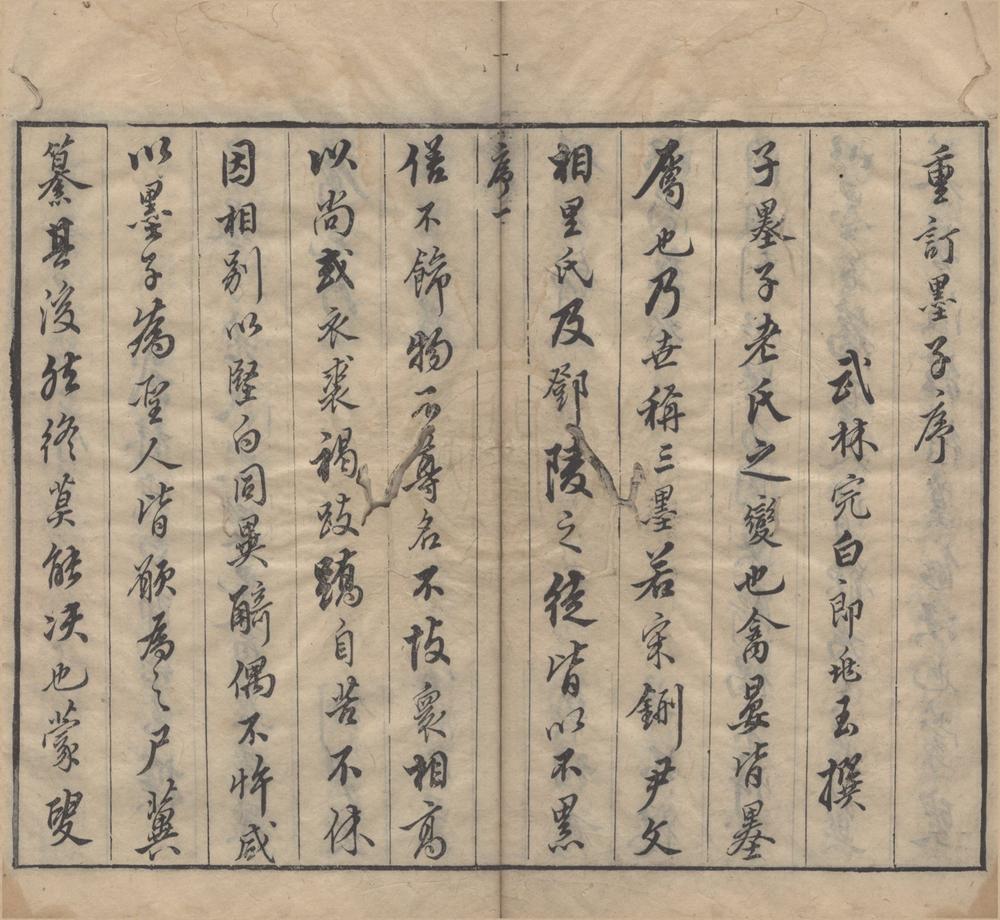 重訂墨子序
武林完白郎兆玉撰
子墨子老氏之變也禽晏皆墨
屬也乃世稱三墨若宋鈃尹文
相里氏及鄧陵之徒皆以不累
序一
俗不飾物不尊名不忮衆相高
以尚或衣裘褐跂蹻自苦不休
因相别以堅白同異觭偶不忤咸
以墨子為聖人皆願為之尸冀
纂其後然終莫能决也蒙叟